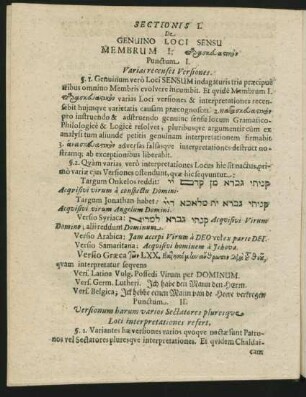 SECTIONIS I.
De
GENUINO LOCI SENSU
MEMBRUM I.
Punctum. I.
Varias recenset Versiones.
§. 1. Genuinum verò Loci SENSUM indagaturis tria præcipuè
tribus omnino Membris evolvere incumbit. Et qvidè Membrum I.
varias Loci versiones & interpretationes recen-
sebit hujusque varietatis caussas prægnoscet.
pro instruendo & adstruendo genuinè sensu locum Gramatico-
Philologicè & Logicè resolvet, pluribusque argumentis cùm ex
analysi tum aliunde petitis genuinam interpretationem firmabit.
3. adversas falsasque interpretationes destruit no-
stramque ab exceptionibus liberabit.
§. 2. Qvàm varias verò interpretationes Locus hic sit nactus, pri-
mò variæ ejus Versiones ostendunt, quæ hic sequuntur:
Targum Onkelos reddit: קניתי גברא מן קדם יי
Acqvisivi virum à conspectu Domini.
Targum Jonathan habet: קניתי גברא ית מלאכא דיי
Acqvisivi virum Angelum Domini.
Versio Syriaca: קניתי גברא למריא Acqvisivi Virum
Domino; alii reddunt Dominum.
Versio Arabica: Jam accepi Virum à DEO vel ex parte DEI.
Versio Samaritana: Acqvisivi hominem à Jehova.
Versio Græca LXX.
quam interpretatur seqvens
Vers. Latina Vulg. Possedi Virum per DOMINUM.
Vers. Germ. Lutheri. Ich habe den Mann den HErrn.
Vers. Belgica; Ick hebbe eenen Man van de Heere verkregen
Punctum. II.
Versionum harum varios Sectatores pluresque
Loci interpretationes refert.
§. 1. Variantes hæ versiones varios qvoqve nactæ sunt Patro-
nos vel Sectatores pluresqve interpretationes. Et quidem Chaldai-
cam